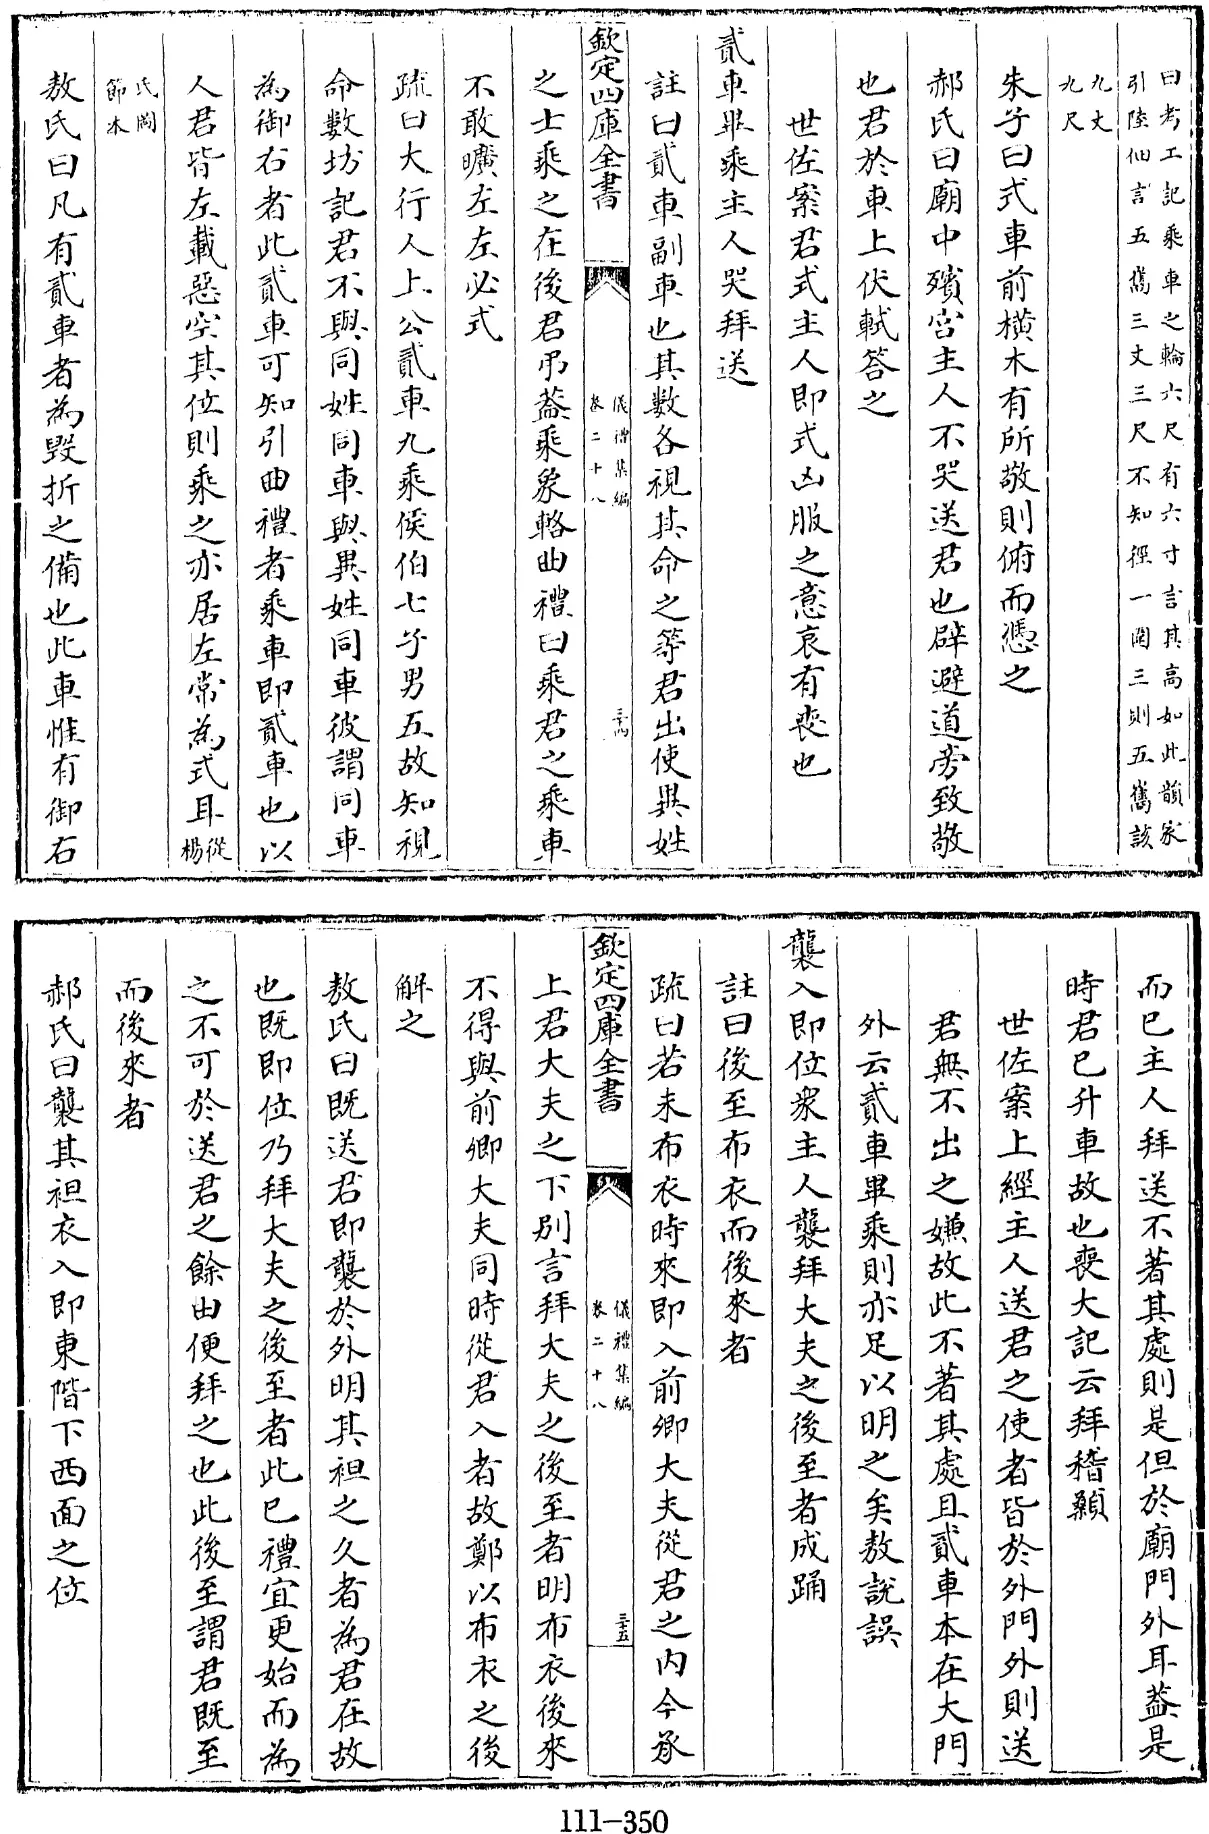 曰考工記乘車之輪六尺有六寸言其高如此韻家
引陸佃言五雟三丈三尺不知徑一圍三則五雟該
九丈
九尺
朱子曰式車前橫木有所敬則俯而憑之
郝氏曰廟中殯宫主人不哭送君也辟避道旁致敬
也君於車上伏軾答之
世佐案君式主人即式凶服之意哀有喪也
貳車畢乘主人哭拜送
註曰貳車副車也其數各視其命之等君出使異姓
欽定四庫全書
儀禮集編
卷二十八
三十四
之士乘之在後君弔蓋乘象輅曲禮曰乘君之乘車
不敢曠左左必式
疏曰大行人上公貳車九乘侯伯七子男五故知視
命數坊記君不與同姓同車與異姓同車彼謂同車
為御右者此貳車可知引曲禮者乘車即貳車也以
人君皆左載惡空其位則乘之亦居左常為式耳從
楊
氏圖
節本
敖氏曰凡有貳車者為毀折之備也此車惟有御右
而已主人拜送不著其處則是但於廟門外耳蓋是
時君已升車故也喪大記云拜稽顙
世佐案上經主人送君之使者皆於外門外則送
君無不出之嫌故此不著其處且貳車本在大門
外云貳車畢乘則亦足以明之矣敖說誤
襲入即位衆主人襲拜大夫之後至者成踊
註曰後至布衣而後來者
疏曰若未布衣時來即入前卿大夫從君之内今承
欽定四庫全書
儀禮集編
卷二十八
三十五
上君大夫之下别言拜大夫之後至者明布衣後來
不得與前卿大夫同時從君入者故鄭以布衣之後
解之
敖氏曰既送君即襲於外明其袒之久者為君在故
也既即位乃拜大夫之後至者此已禮宜更始而為
之不可於送君之餘由便拜之也此後至謂君既至
而後來者
郝氏曰襲其袒衣入即東階下西面之位
111-350